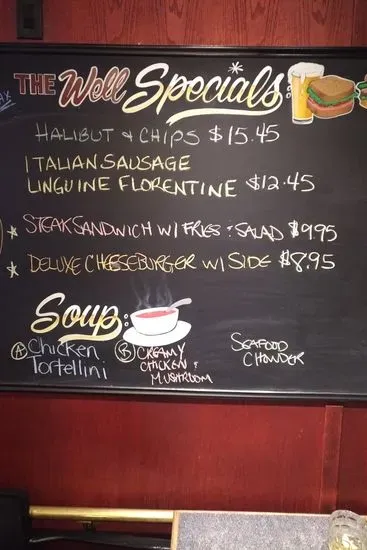 THE Well Specials
HALIBUT & CHIPS $15.45
ITALIAN SAUSAGE
LINGUINE FLORENTINE $12.45
STEAK SANDWICH W/ FRIES & SALAD $9.95
DELUXE CHEESEBURGER W/ SIDE $8.95
Soup:
A Chicken Tortellini
B CREAMY CHICKEN & MUSHROOM
SEAFOOD CHOWDER